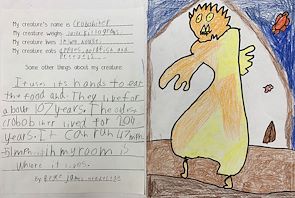 My creature's name is Crobohiker
My creature weighs kilograms.
My creature lives in my house.
My creature eats apples, goldfish and
Some other things about my creature:
It uses its hands to eat
the food and. They live for
about 107 years. The oldest
crobohiker lived for 204
years. It can run 42 mph
51 mph. In my room is
where it lives.
by